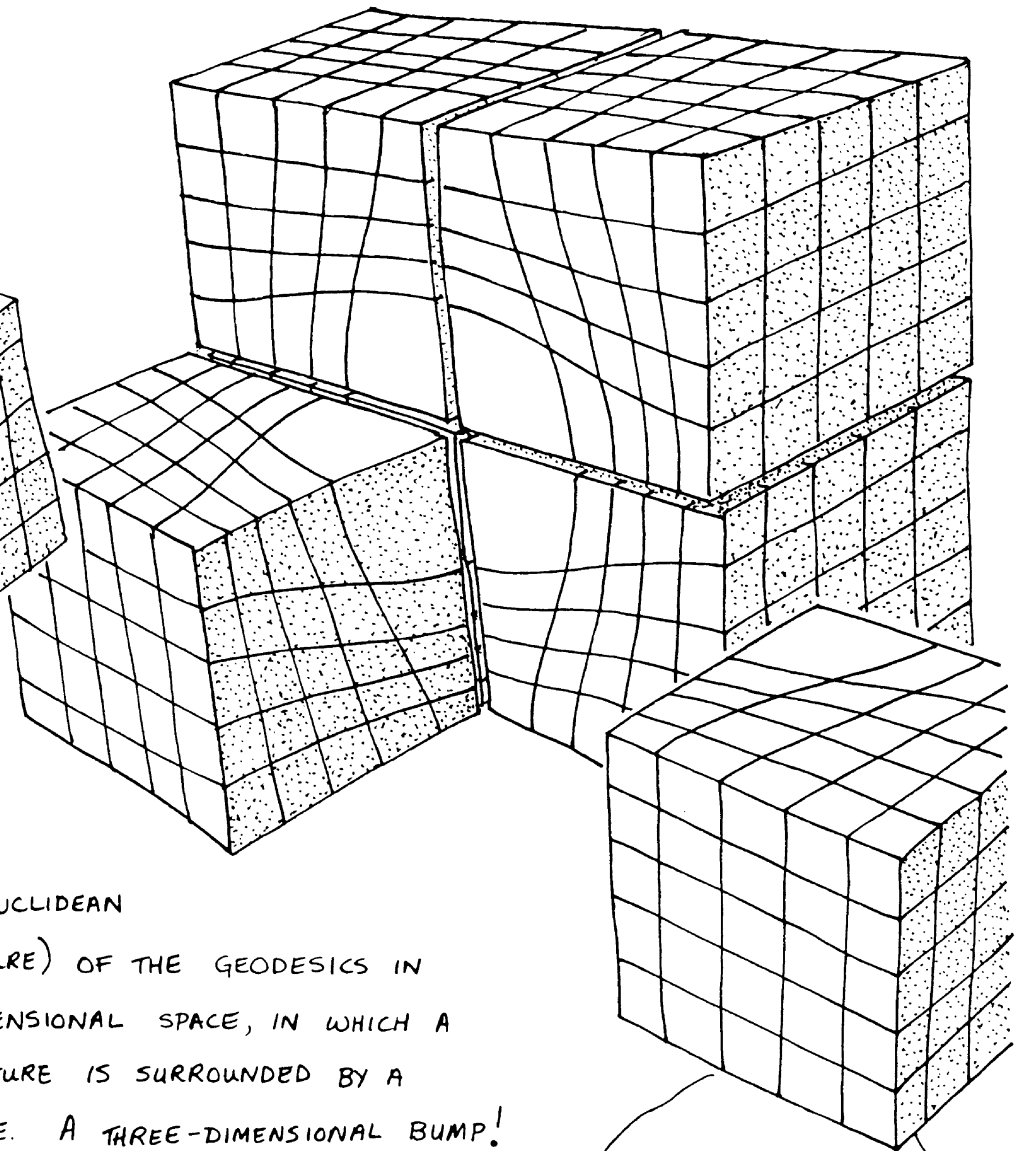 UCLIDEAN
RE) OF THE GEODESICS IN
ENSIONAL SPACE, IN WHICH A
TURE IS SURROUNDED BY A
E. A THREE-DIMENSIONAL BUMP!